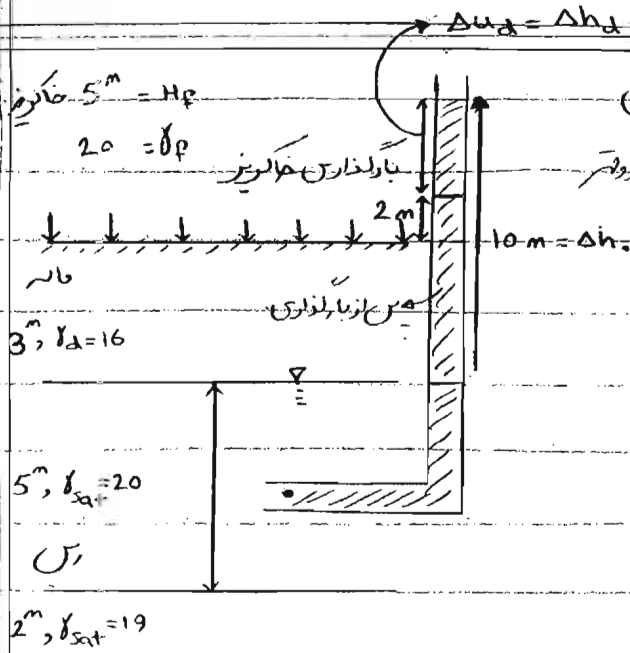 Δu_d = Δh_d
خاکریز 5^m = H_f
20 = γ_f
بارگذاری خاکریز
2 m
10 m = Δh.
ماسه
پس از بارگذاری
3^m, γ_d = 16
5^m, γ_sat = 20
رس
2^m, γ_sat = 19